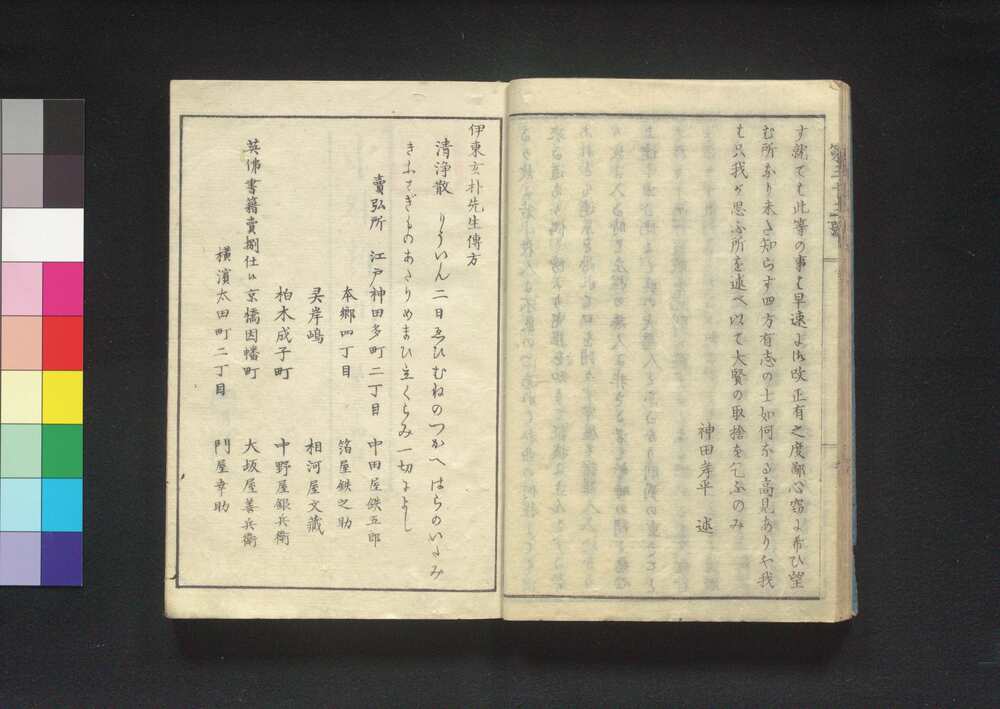 す就ても此等の事も早速よ御改正有之度鄙心窃よ希ひ望
む所なり未た知らす四方有志の士如何なる高見ありや我
も只我が思ふ所を述べ以て大賢の取捨を乞ふのみ
神田孝平 述
伊東玄朴先生傳方
清浄散 りういん 二日ゑひ むねのつかへ はらのいたみ
きふてぎもの あたり めまひ 立くらみ 一切によし
賣弘所 江戸神田多町二丁目 中田屋鉄五郎
本郷四丁目 箔屋鉄之助
霊岸嶋 相河屋文蔵
柏木成子町 中野屋銀兵衛
英佛書籍賣捌仕ハ 京橋因幡町 大坂屋善兵衛
横濱太田町二丁目 門屋幸助